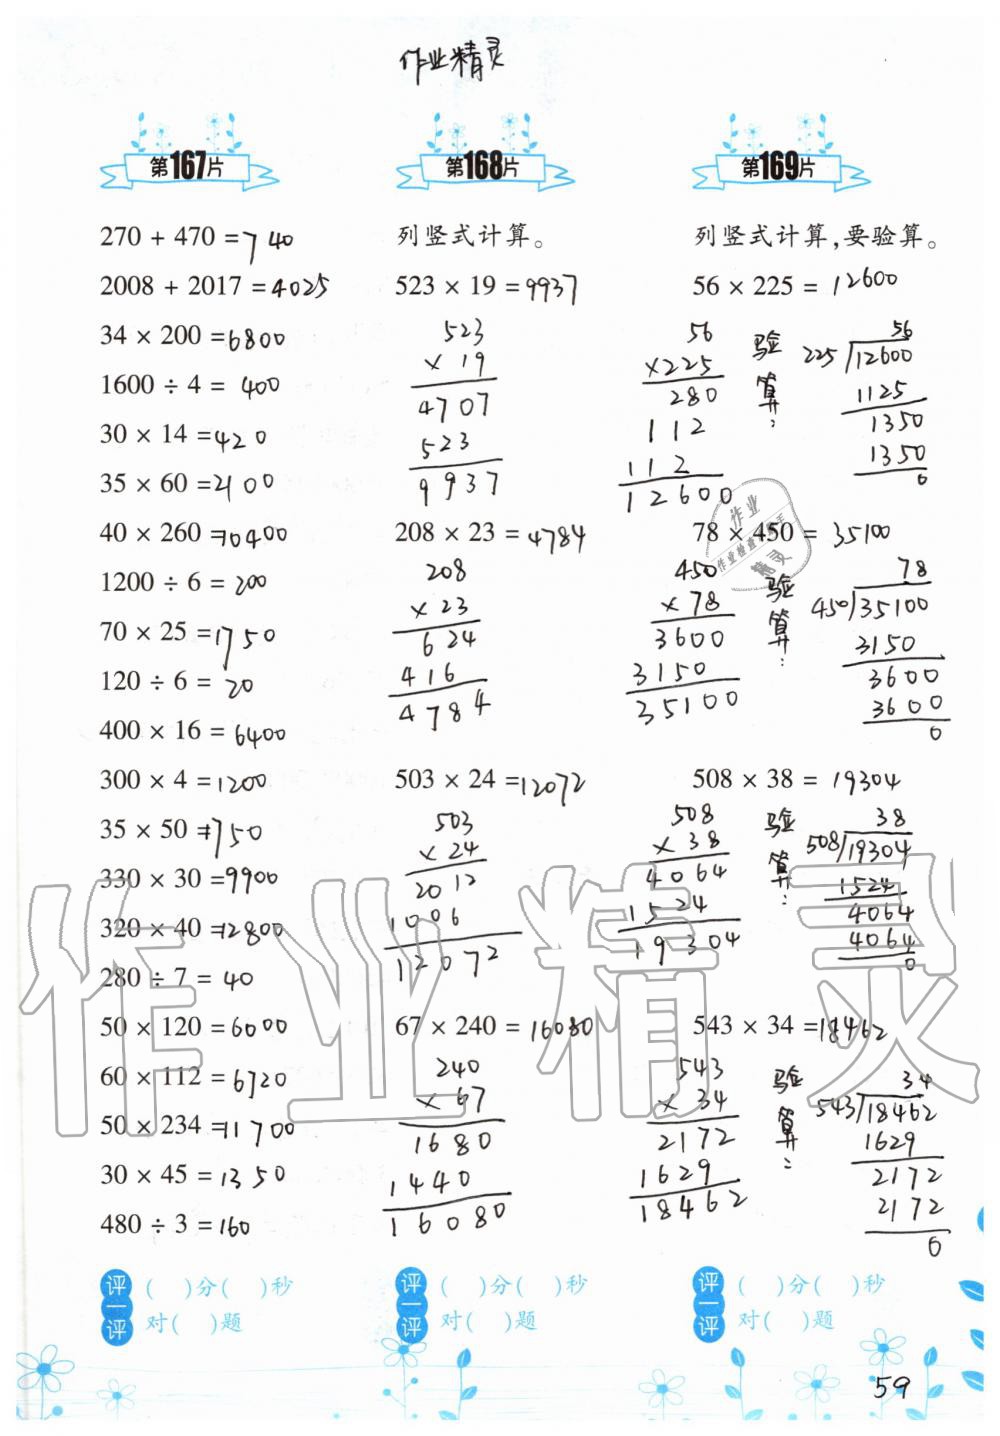 作业精灵
第167片
270 + 470 = 740
2008 + 2017 = 4025
34 × 200 = 6800
1600 ÷ 4 = 400
30 × 14 = 420
35 × 60 = 2100
40 × 260 = 10400
1200 ÷ 6 = 200
70 × 25 = 1750
120 ÷ 6 = 20
400 × 16 = 6400
300 × 4 = 1200
35 × 50 = 1750
330 × 30 = 9900
320 × 40 = 12800
280 ÷ 7 = 40
50 × 120 = 6000
60 × 112 = 6720
50 × 234 = 11700
30 × 45 = 1350
480 ÷ 3 = 160
评一评
( )分( )秒
对( )题
第168片
列竖式计算。
523 × 19 = 9937
523
× 19
4707
523
9937
208 × 23 = 4784
208
× 23
624
416
4784
503 × 24 = 12072
503
× 24
2012
1006
12072
67 × 240 = 16080
240
× 67
1680
1440
16080
评一评
( )分( )秒
对( )题
第169片
列竖式计算,要验算。
56 × 225 = 12600
56
×225
280
112
112
12600
验算:
56
225 12600
1125
1350
1350
0
78 × 450 = 35100
450
× 78
3600
3150
35100
验算:
78
450 35100
3150
3600
3600
0
508 × 38 = 19304
508
× 38
4064
1524
19304
验算:
38
508 19304
1524
4064
4064
0
543 × 34 = 18462
543
× 34
2172
1629
18462
验算:
34
543 18462
1629
2172
2172
0
评一评
( )分( )秒
对( )题
作业精灵
59